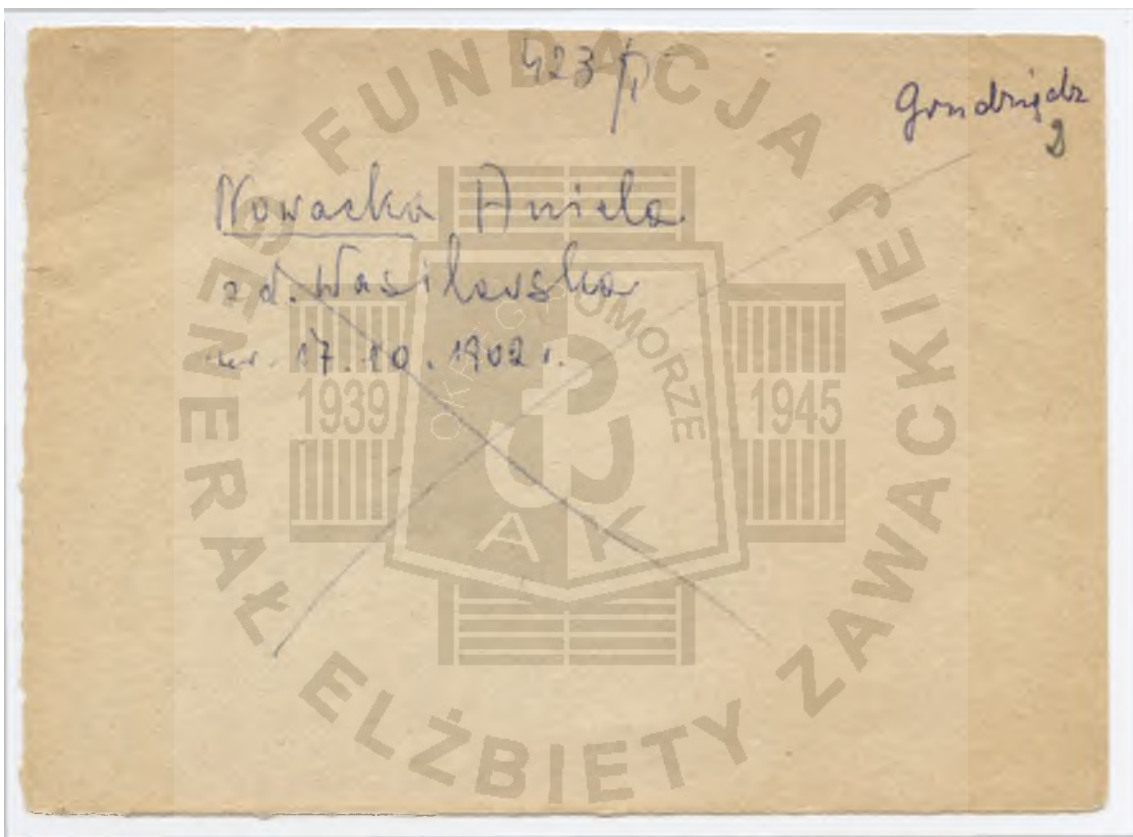 423/P
Grudziądz
2
Nowacka Aniela
z d. Wasilewska
ur. 17.10.1902 r.
FUNDACJA
GENERAŁ ELŻBIETY ZAWACKIEJ
1939
1945
OKRĘG POMORZE
AK